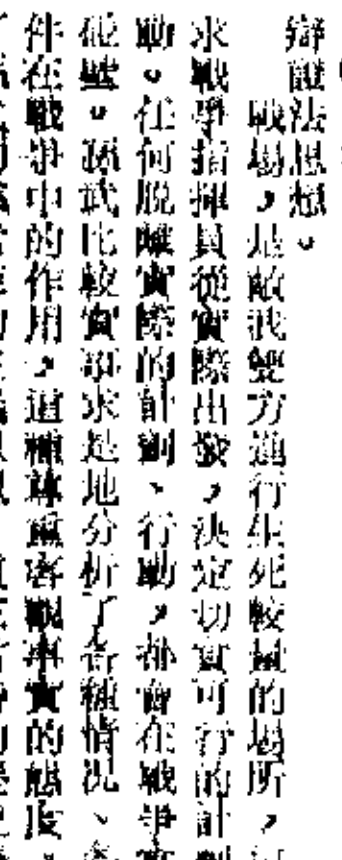 辯證法思想。
戰場，是敵我雙方進行生死較量的場所，
求戰爭指揮員從實際出發，決定切實可行的計劃
動。任何脫離實際的計劃、行動，都會在戰爭實
碰壁。孫武比較實事求是地分析了各種情況、
件在戰爭中的作用，這種尊重客觀事實的態度，